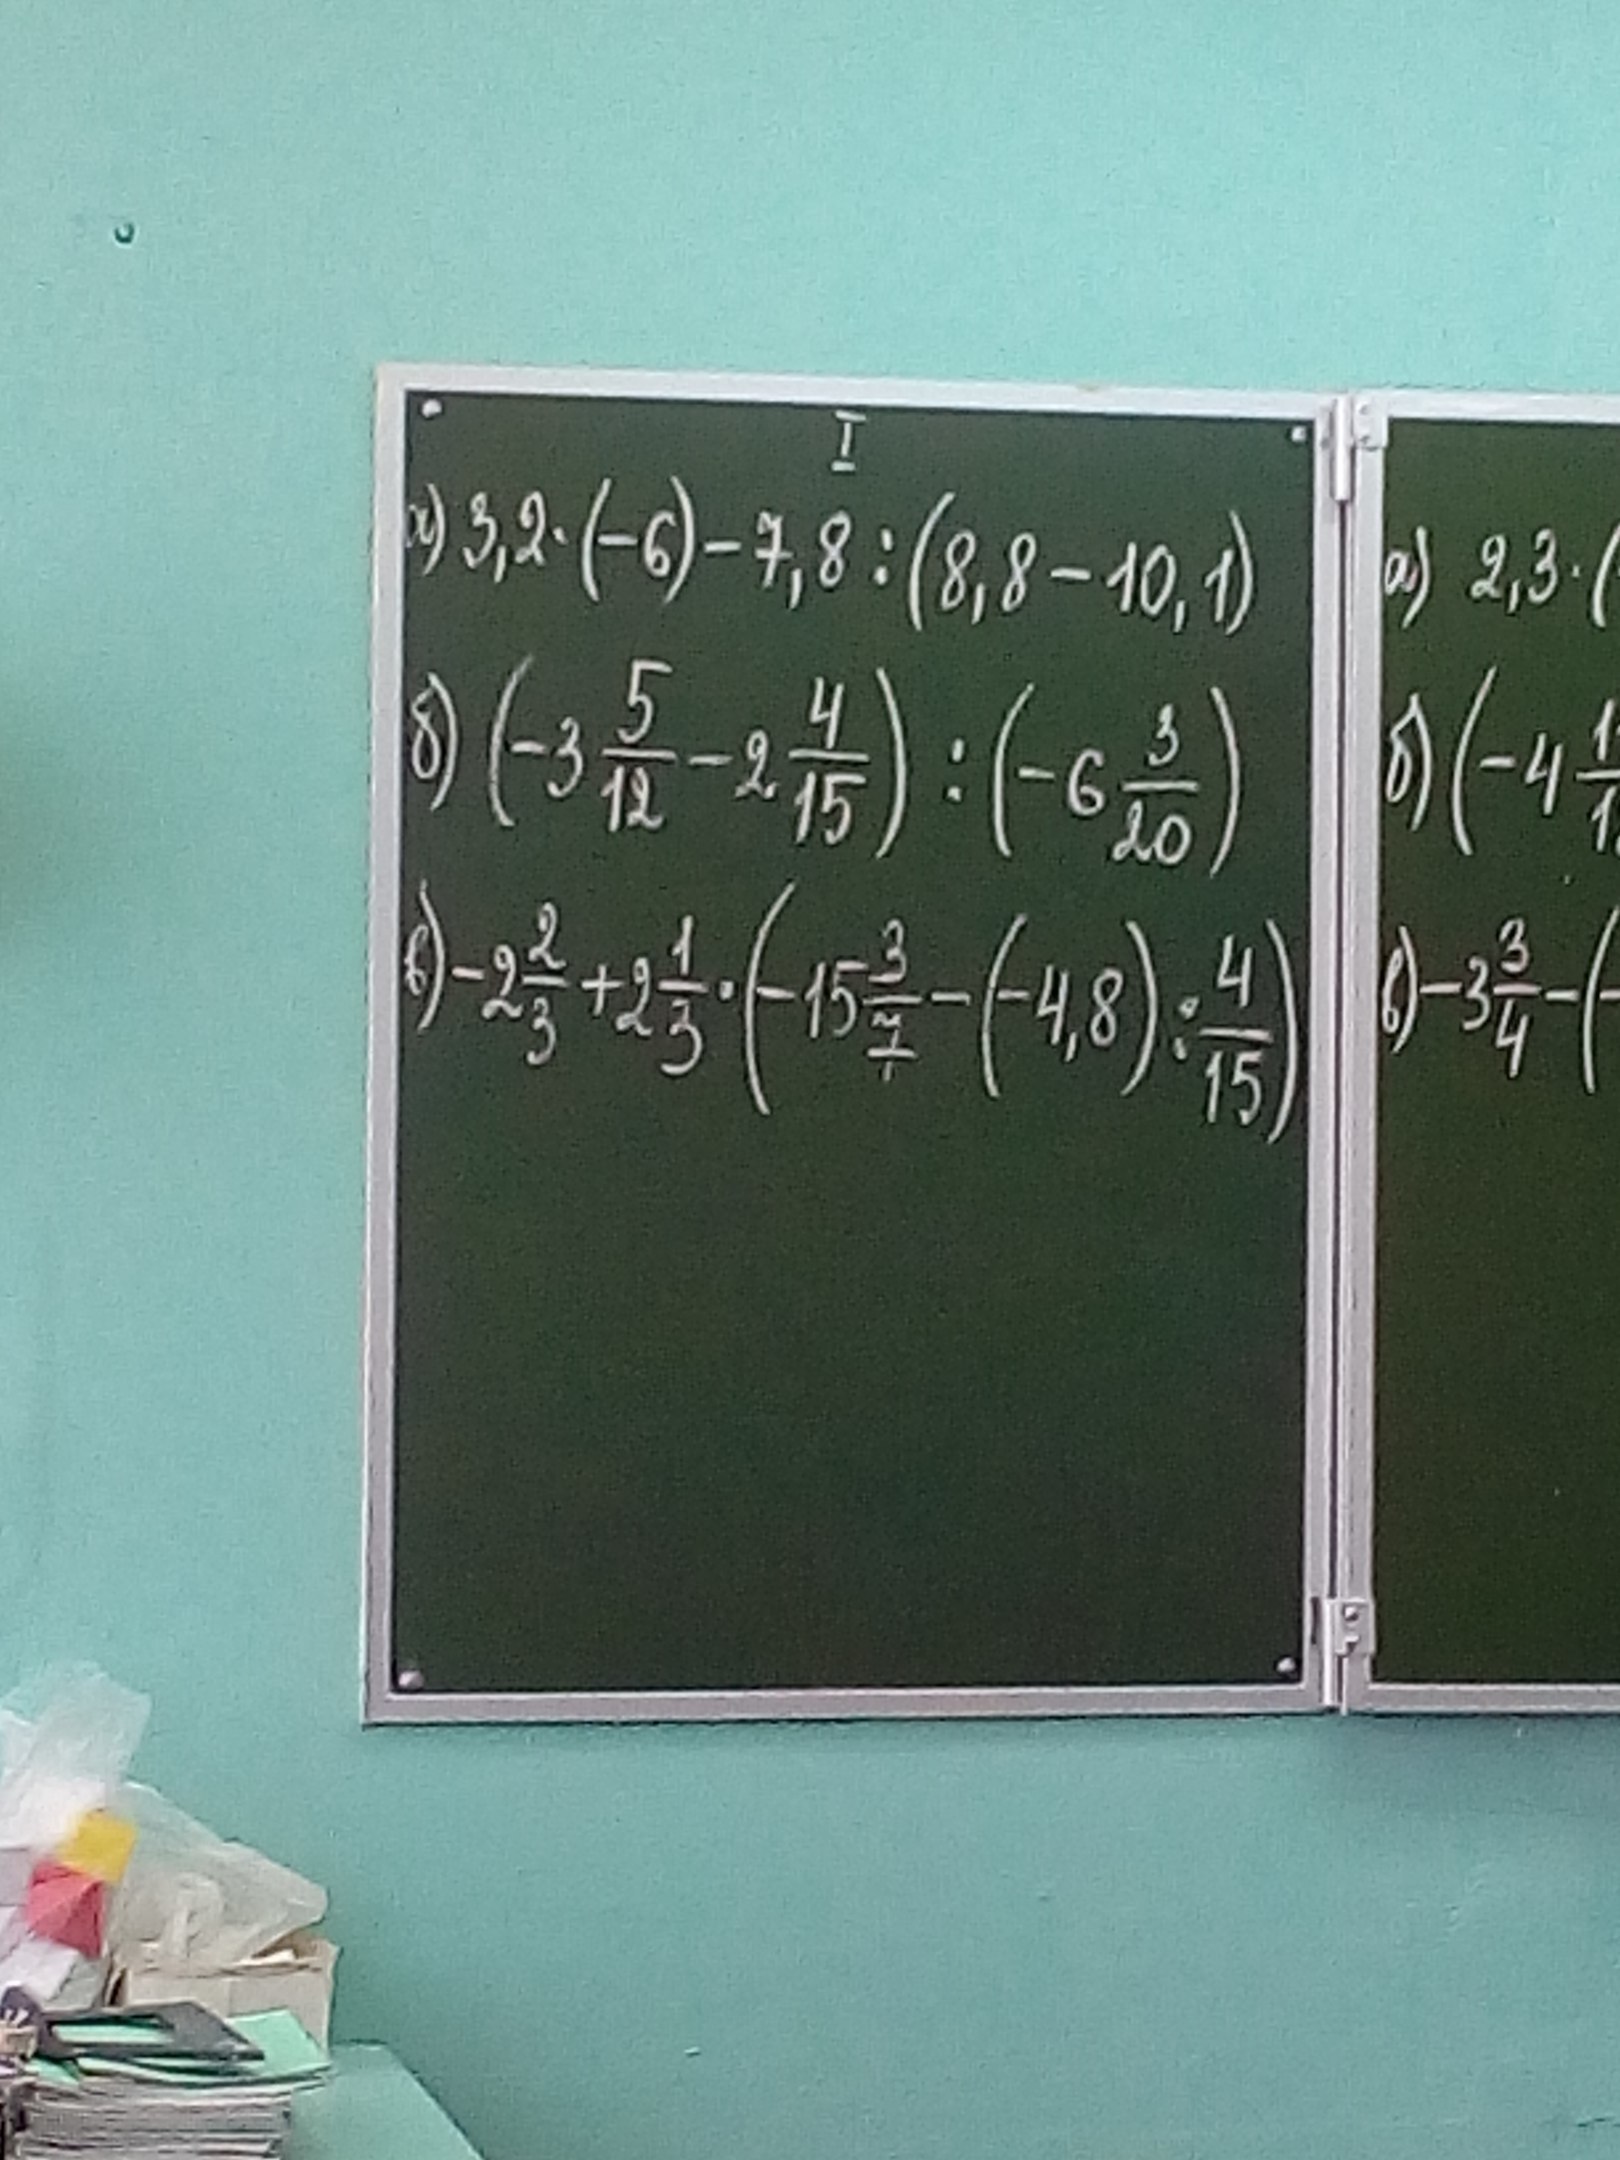 I
а) 3,2·(-6)-7,8:(8,8-10,1)
б) (-3 5/12 - 2 4/15) : (-6 3/20)
в) -2 2/3 + 2 1/3 · (-15 3/7 - (-4,8) : 4/15)
а) 2,3·(
б) (-4
в) -3 3/4 - (-